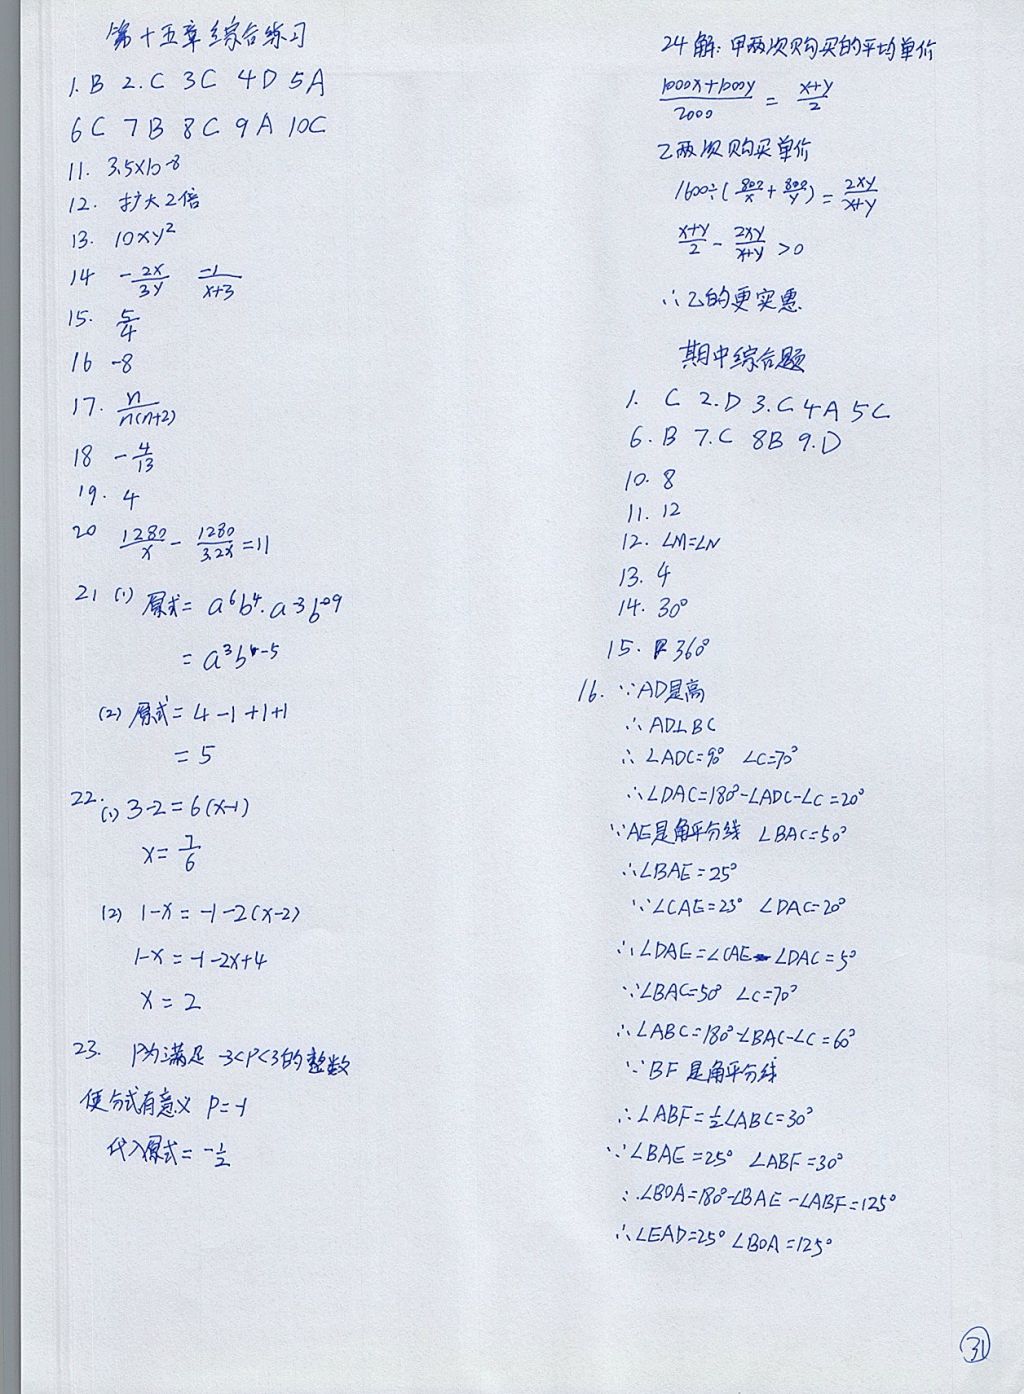 第十五章综合练习
1. B 2. C 3 C 4 D 5 A
6 C 7 B 8 C 9 A 10C
11. 3.5×10-8
12. 扩大2倍
13. 10xy²
14 -2x/3y -1/x+3
15. 5/4
16 -8
17. n/n(n+2)
18 -4/13
19. 4
20 1280/x - 1280/3.2x = 11
21 (1) 原式= a⁶b⁴·a-3b-9
= a³b4-5
(2) 原式= 4-1+1+1
= 5
22. (1) 3-2=6(x-1)
x= 7/6
(2) 1-x = -1-2(x-2)
1-x = -1-2x+4
x = 2
23. P为满足 -3<P<3的整数
使分式有意义 P=-1
代入原式= -1/2
24 解: 甲两次购买的平均单价
1000x+1000y/2000 = x+y/2
乙两次购买单价
1600÷(800/x + 800/y) = 2xy/x+y
x+y/2 - 2xy/x+y >0
∴乙的更实惠
期中综合题
1. C 2.D 3.C 4A 5C
6.B 7.C 8B 9.D
10. 8
11. 12
12. ∠M=∠N
13. 4
14. 30°
15. 360°
16. ∵AD是高
∴AD⊥BC
∴∠ADC=90° ∠C=70°
∴∠DAC=180°-∠ADC-∠C=20°
∵AE是角平分线 ∠BAC=50°
∴∠BAE=25°
∵∠CAE=25° ∠DAC=20°
∴∠DAE=∠CAE-∠DAC=5°
∵∠BAC=50° ∠C=70°
∴∠ABC=180°-∠BAC-∠C=60°
∵BF是角平分线
∴∠ABF=½∠ABC=30°
∵∠BAE=25° ∠ABF=30°
∴∠BOA=180°-∠BAE-∠ABF=125°
∴∠EAD=25° ∠BOA=125°
31